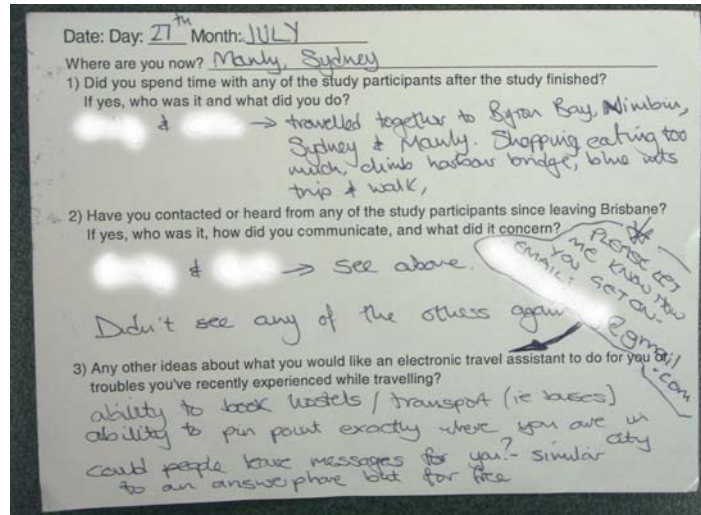 Date: Day: 27th Month: JULY
Where are you now? Manly, Sydney
1) Did you spend time with any of the study participants after the study finished?
If yes, who was it and what did you do?
& → travelled together to Byron Bay, Nimbin,
Sydney & Manly. Shopping eating too
much, climb harbour bridge, blue mts
trip & walk,
2) Have you contacted or heard from any of the study participants since leaving Brisbane?
If yes, who was it, how did you communicate, and what did it concern?
& → see above.
Didn't see any of the others again
PLEASE LET
ME KNOW HOW
YOU GET ON -
EMAIL:
@gmail
.com
3) Any other ideas about what you would like an electronic travel assistant to do for you or
troubles you've recently experienced while travelling?
ability to book hostels / transport (ie buses)
ability to pin point exactly where you are in
city
could people leave messages for you? - similar
to an answerphone but for free